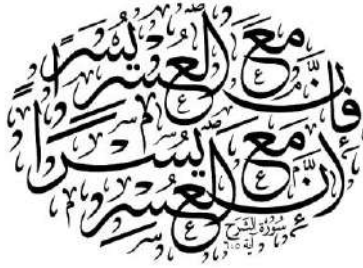 فَإِنَّ مَعَ العُسْرِ يُسْرًا
إِنَّ مَعَ العُسْرِ يُسْرًا
سورة الشرح
آية ٥،٦